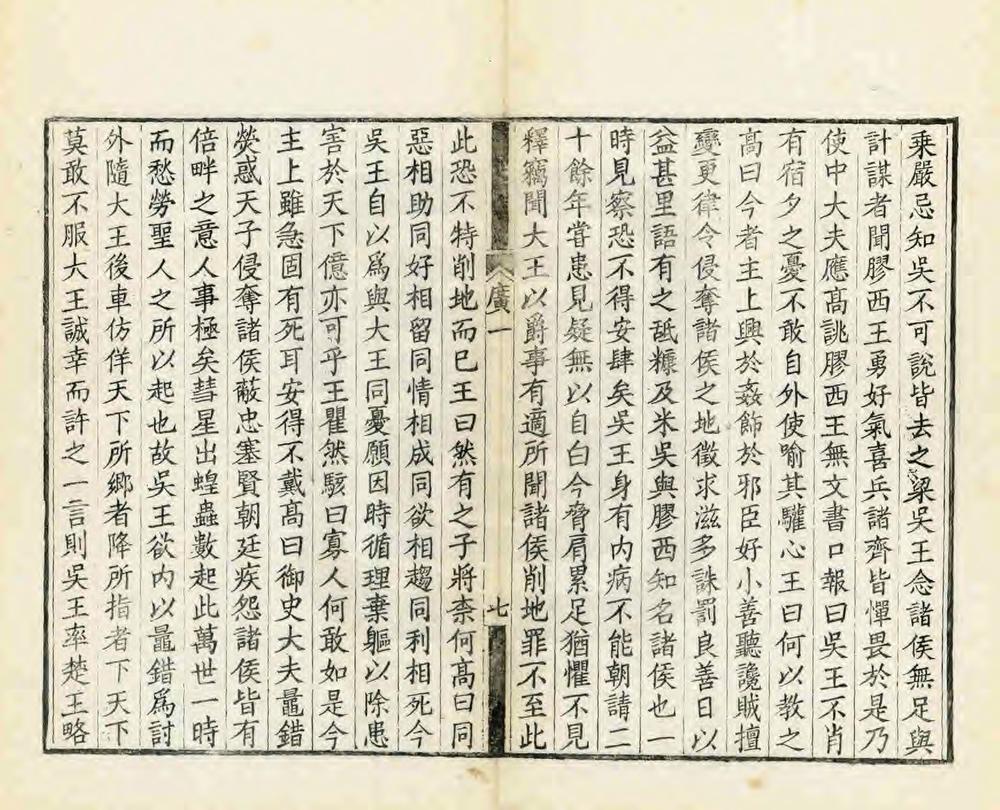 乗嚴忌知吳不可說皆去之梁吳王念諸侯無足與
計謀者聞膠西王勇好氣喜兵諸齊皆憚畏於是乃
使中大夫應髙誂膠西王無文書口報曰吳王不肖
有宿夕之憂不敢自外使喻其驩心王曰何以教之
髙曰今者主上興於姦飾於邪臣好小善聽讒賊擅
變更律令侵奪諸侯之地徵求滋多誅罰良善日以
益甚里語有之舐糠及米吳與膠西知名諸侯也一
時見察恐不得安肆矣吳王身有内病不能朝請二
十餘年嘗患見疑無以自白今脅肩累足猶懼不見
釋竊聞大王以爵事有適所聞諸侯削地罪不至此
廣一
七
此恐不特削地而已王曰然有之子將柰何髙曰同
惡相助同好相留同情相成同欲相趨同利相死今
吳王自以爲與大王同憂願因時循理棄軀以除患
害於天下億亦可乎王瞿然駭曰寡人何敢如是今
主上雖急固有死耳安得不戴髙曰御史大夫鼂錯
熒惑天子侵奪諸侯蔽忠塞賢朝廷疾怨諸侯皆有
倍畔之意人事極矣彗星出蝗蟲數起此萬世一時
而愁勞聖人之所以起也故吳王欲内以鼂錯爲討
外隨大王後車仿佯天下所鄉者降所指者下天下
莫敢不服大王誠幸而許之一言則吳王率楚王略